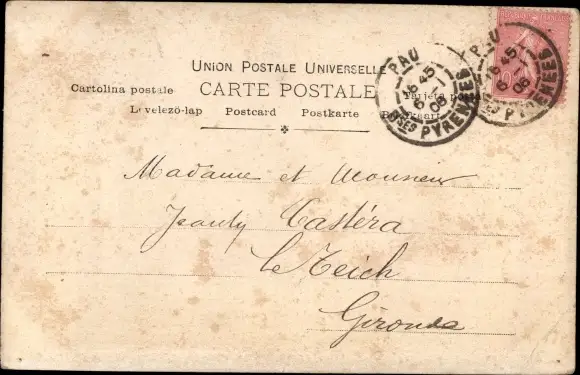 UNION POSTALE UNIVERSELLE
CARTE POSTALE
Cartolina postale
Tarjeta
Levelező-lap Postcard Postkarte
PAU
16 45
6 -1
06
BSES PYRENEES
PAU
45
6 -1
06
PYRENEES
Madame et Monsieur
Jeanty Castéra
Le Teich
Gironde